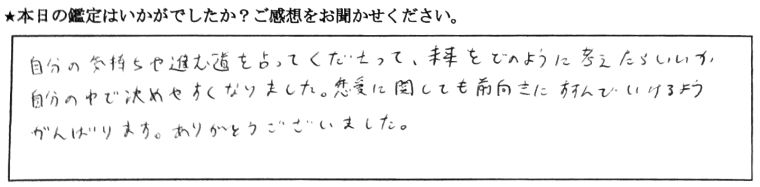 ★本日の鑑定はいかがでしたか？ご感想をお聞かせください。
自分の気持ちや進む道を占ってくださって、未来をどのように考えたらいいか
自分の中で決めやすくなりました。恋愛に関しても前向きにすすんでいけるよう
がんばります。ありがとうございました。